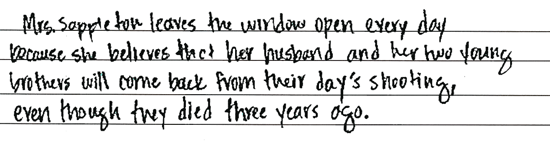 Mrs. Sappleton leaves the window open every day
because she believes that her husband and her two young
brothers will come back from their day's shooting,
even though they died three years ago.